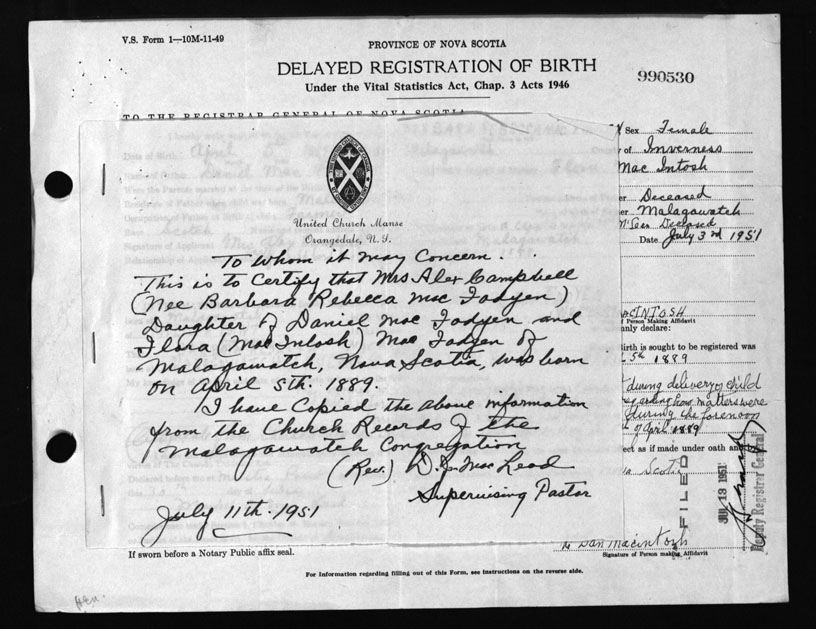 V.S. Form 1—10M-11-49
PROVINCE OF NOVA SCOTIA
DELAYED REGISTRATION OF BIRTH
990530
Under the Vital Statistics Act, Chap. 3 Acts 1946
TO THE REGISTRAR GENERAL OF NOVA SCOTIA
Sex Female
of Inverness
Mac Intosh
Deceased
Malagawatch
Deceased
Date July 3rd 1951
United Church Manse
Orangedale, N.S.
To Whom it May Concern.
This is to Certify that Mrs Alex Campbell
(Nee Barbara Rebecca Mac Fadyen)
Daughter of Daniel Mac Fadyen and
Flora (MacIntosh) Mac Fadyen of
Malagawatch, Nova Scotia, was born
on April 5th. 1889.
I have Copied the above information
from the Church Records of the
Malagawatch Congregation
(Rev.) D. J. Mac Leod
Supervising Pastor
July 11th. 1951
MACINTOSH
of Person Making Affidavit
declare:
Birth is sought to be registered was
5th 1889
during delivery of child
regarding how matters were
during the forenoon
of April 1889
ect as if made under oath and
Scotia
FILED
JUL 13 1951
Deputy Registrar General
Dan Macintosh
If sworn before a Notary Public affix seal.
Signature of Person making Affidavit
For Information regarding filling out of this Form, see instructions on the reverse side.